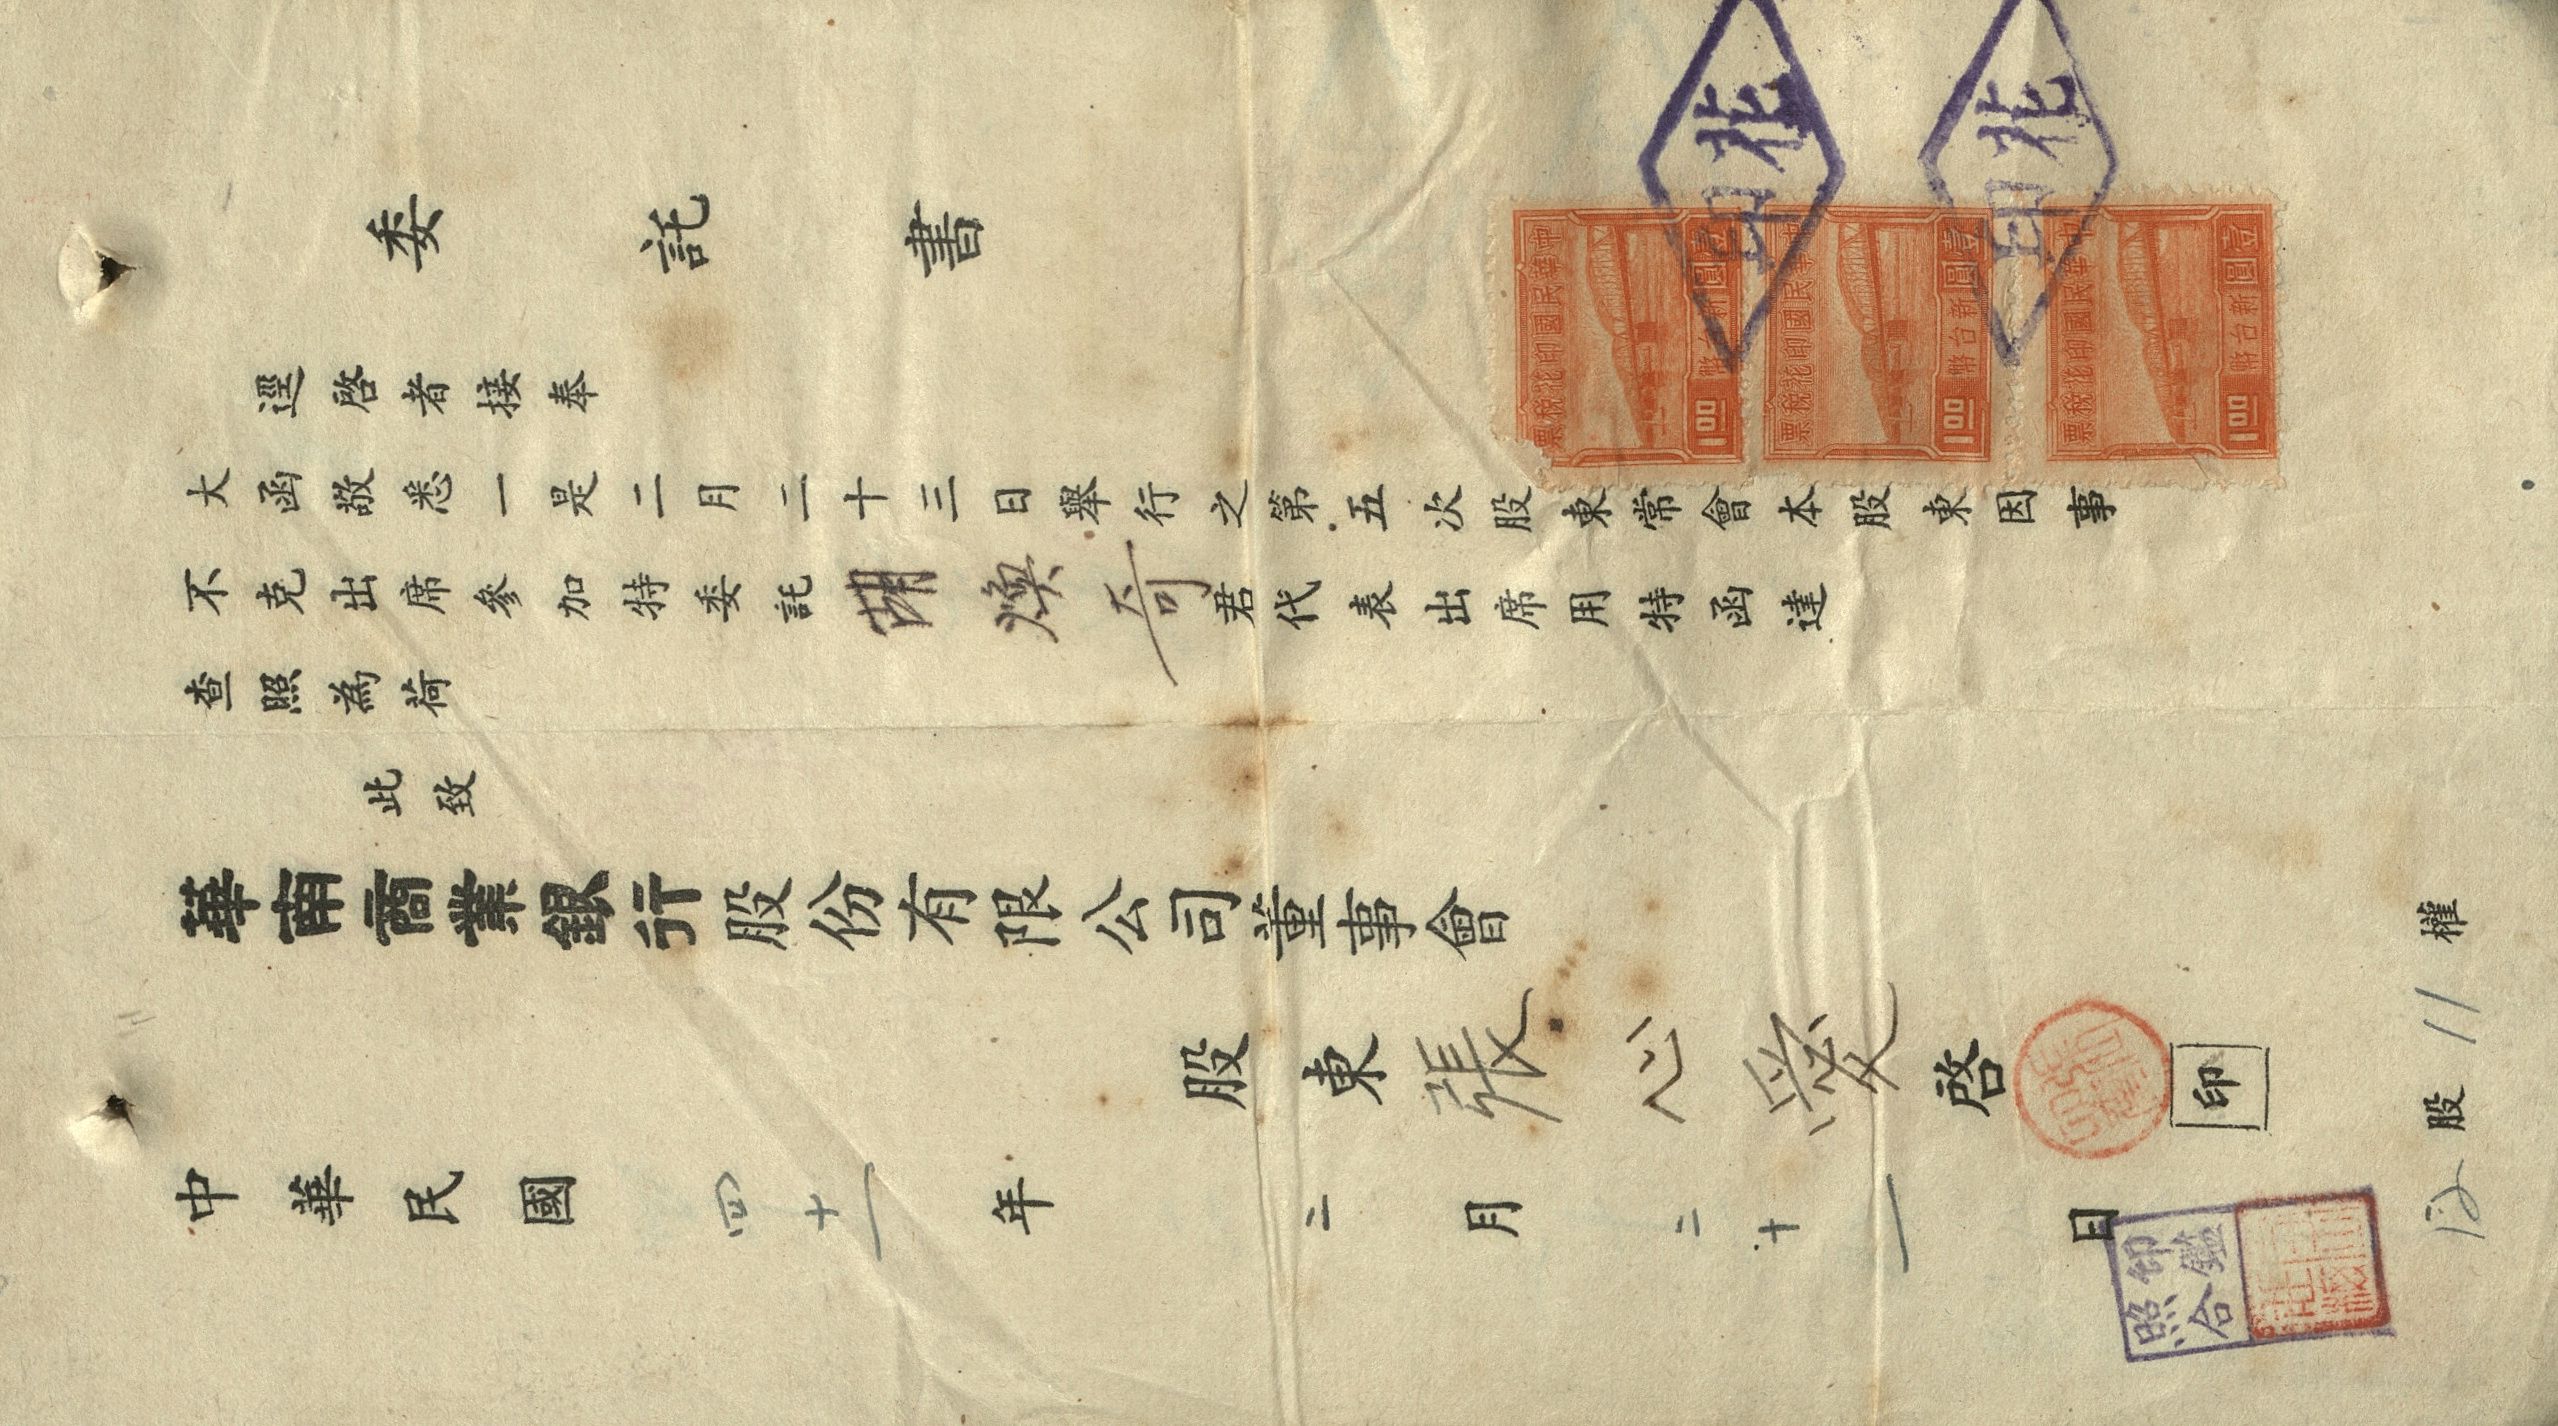 委託書
逕啓者接奉
大函敬悉一是二月二十三日舉行之第五次股東常會本股東因事
不克出席參加特委託胡煥奇君代表出席用特函達
查照為荷
此致
華南商業銀行股份有限公司董事會
股東張心愛啓
印
中華民國四十一年二月二十一日
股11權
印花
印花
中華民國印花稅票
壹圓
新台幣
1.00
中華民國印花稅票
壹圓
新台幣
1.00
中華民國印花稅票
壹圓
新台幣
1.00
印鑑
照合